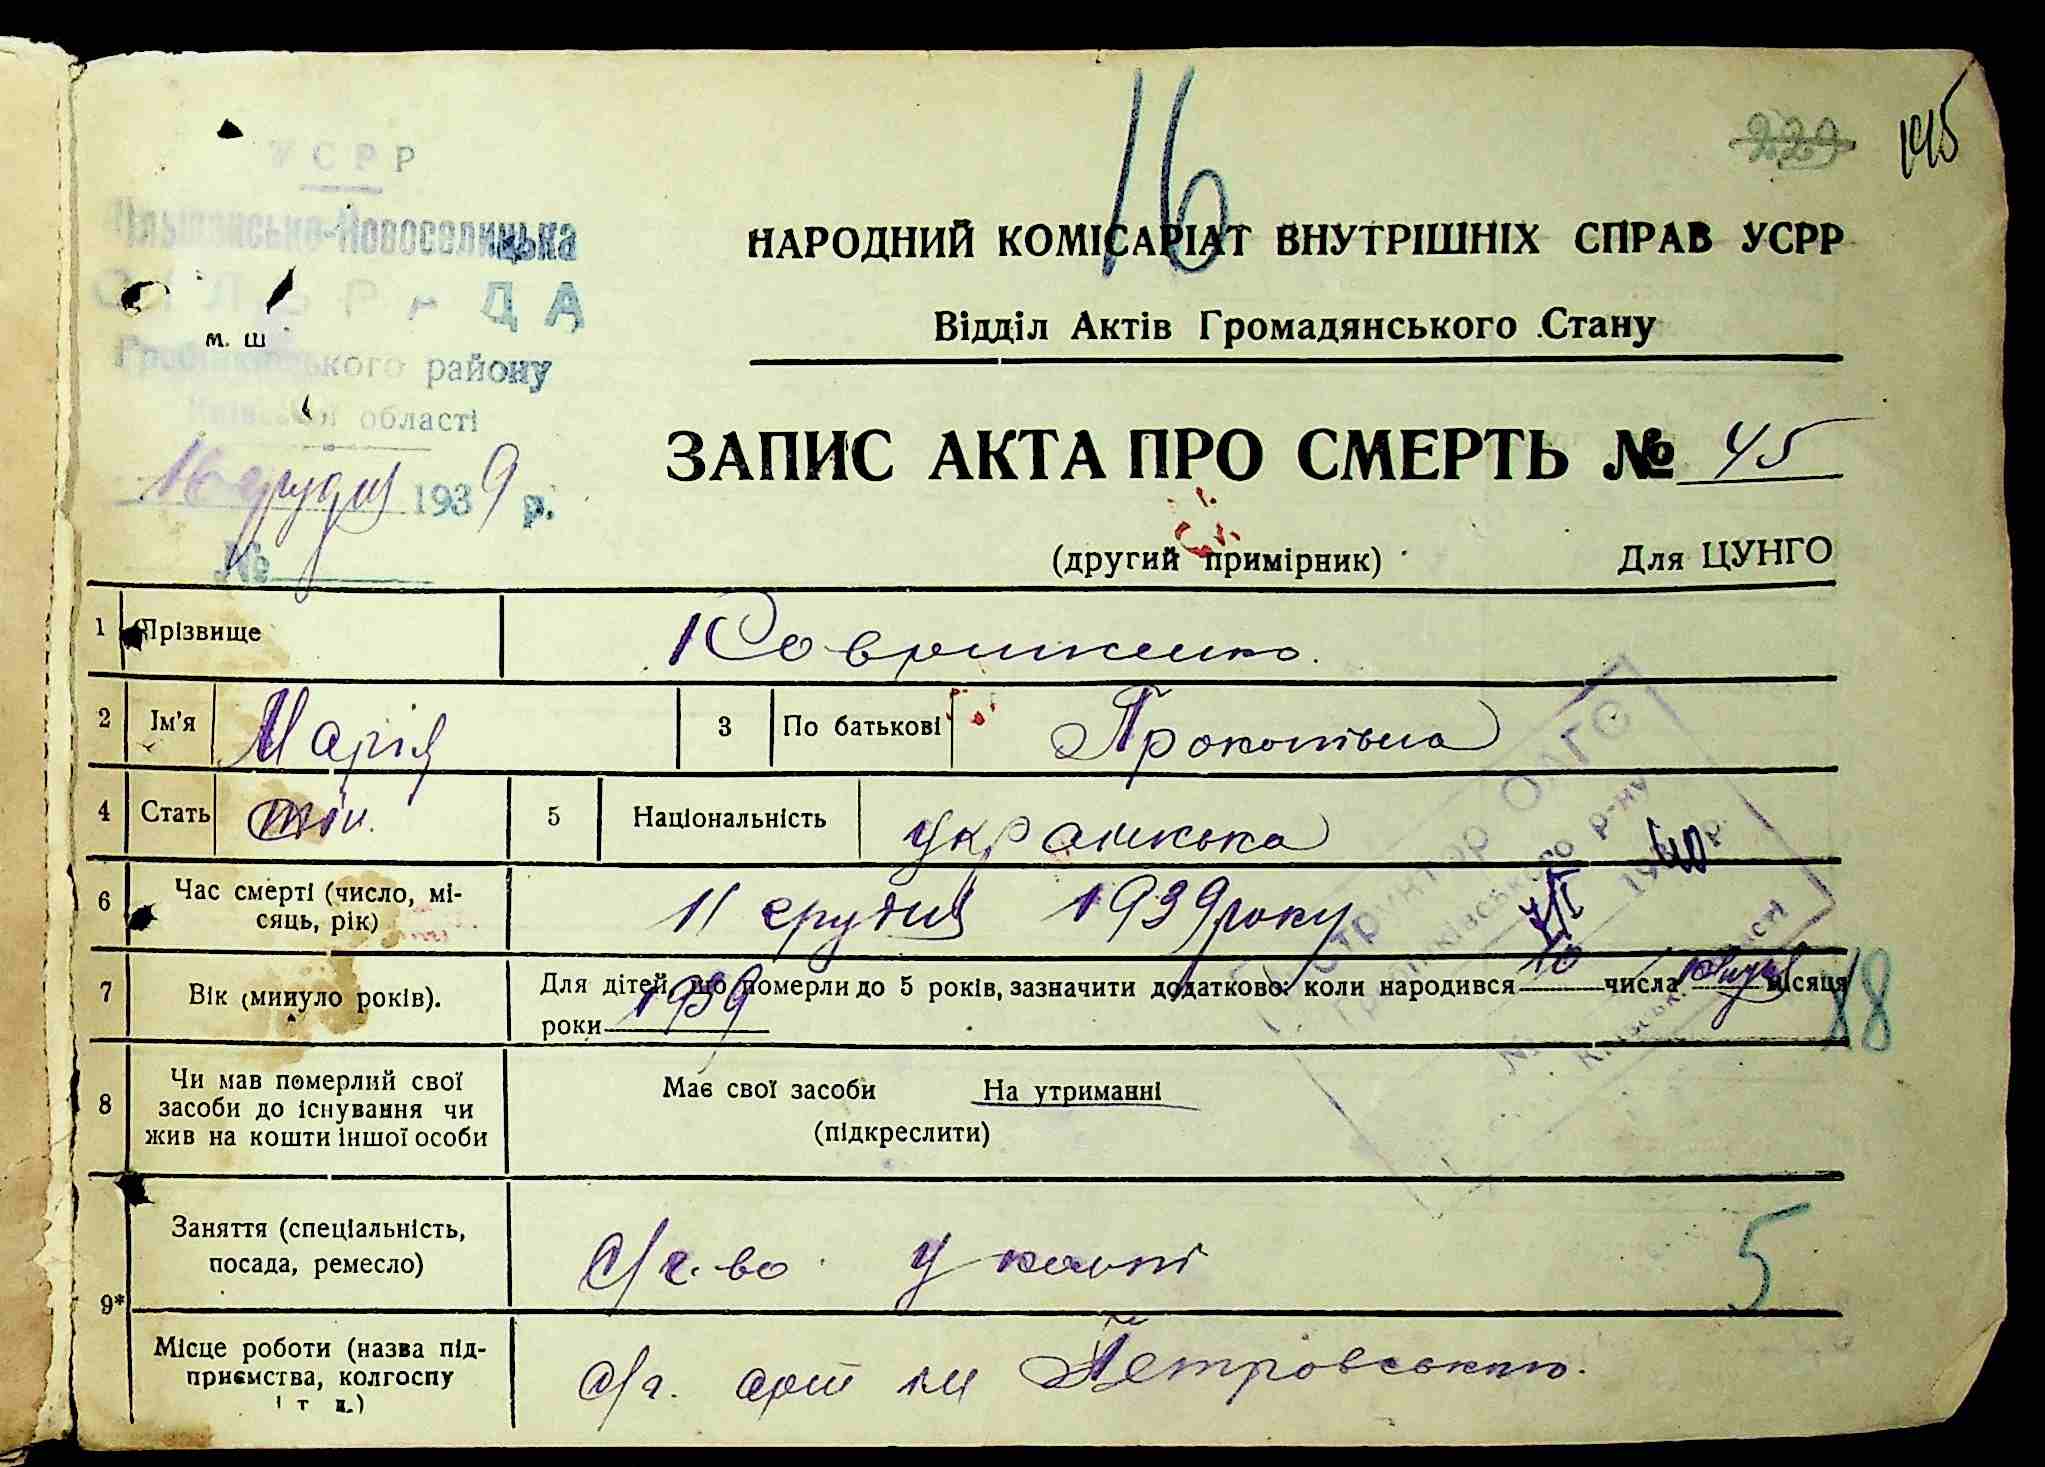 16
229
145
УСРР
Вільшансько-Новоселицька
СІЛЬРАДА
м. ш
Гребінківського району
Київської області
16 грудня 1939 р.
№
НАРОДНИЙ КОМІСАРІАТ ВНУТРІШНІХ СПРАВ УСРР
Відділ Актів Громадянського Стану
ЗАПИС АКТА ПРО СМЕРТЬ № 45
(другий примірник) Для ЦУНГО
1 Прізвище Ковриженко.
2 Ім'я Марія 3 По батькові Прокопівна
4 Стать жін. 5 Національність українська
6 Час смерті (число, мі-
сяць, рік) 11 грудня 1939 року
7 Вік (минуло років). Для дітей, що померли до 5 років, зазначити додатково: коли народився 10 числа місяця
роки 1939
88
8 Чи мав померлий свої
засоби до існування чи
жив на кошти іншої особи
Має свої засоби На утриманні
(підкреслити)
9*
Заняття (спеціальність,
посада, ремесло) с/г-во у колгі
5
Місце роботи (назва під-
приємства, колгоспу
і т. п.) с/г. арт ім Петровського.
Інструктор ОАГС
Гребінківського р-ну
7/I 1940 р.
№
Київськ. області